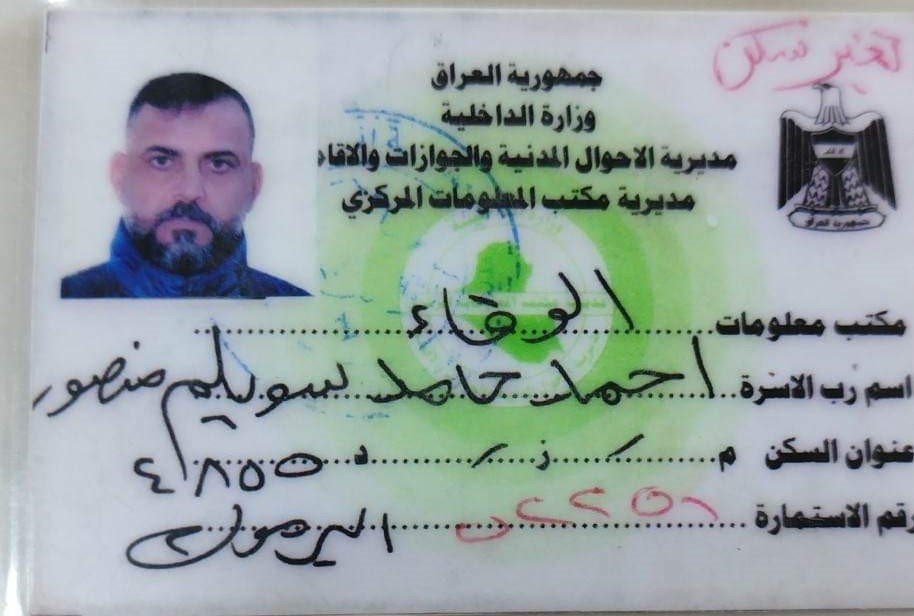 تغير سكن
جمهورية العراق
وزارة الداخلية
مديرية الاحوال المدنية والجوازات والاقامة
مديرية مكتب المعلومات المركزي
جمهورية العراق
مكتب معلومات الوفاء
اسم رب الاسرة احمد حامد سويلم منصور
عنوان السكن م ز د ٤٨٥٥
رقم الاستمارة
اليرموك